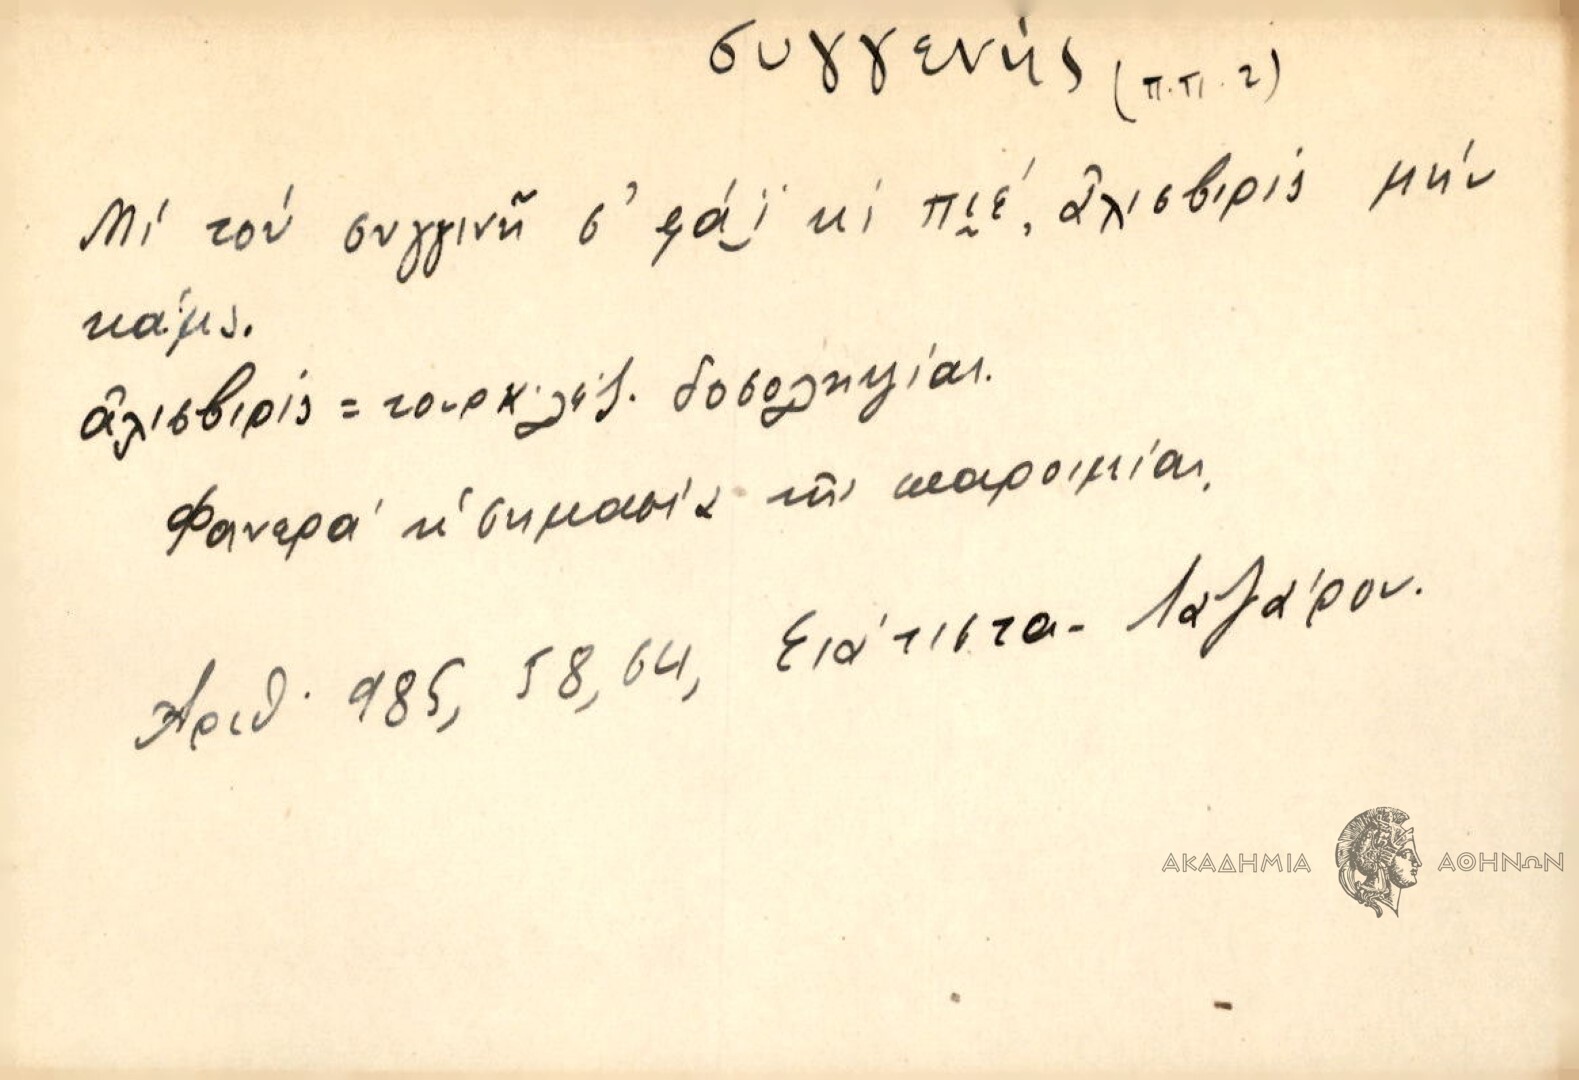 συγγενής (π.π. 2)
Μί τόν συγγινῆ σ' φά̮ϊ κί πιέ, ἀλισβιρίς μήν
κάμς.
ἀλισβιρίς = τουρκ. λέξ. δοσοληψίαι.
Φανερά ἡ σημασία τῆς παροιμίας.
Ἀριθ. 985, 58, 64, Σιάτιστα - Λαζάρου.
ΑΚΑΔΗΜΙΑ ΑΘΗΝΩΝ